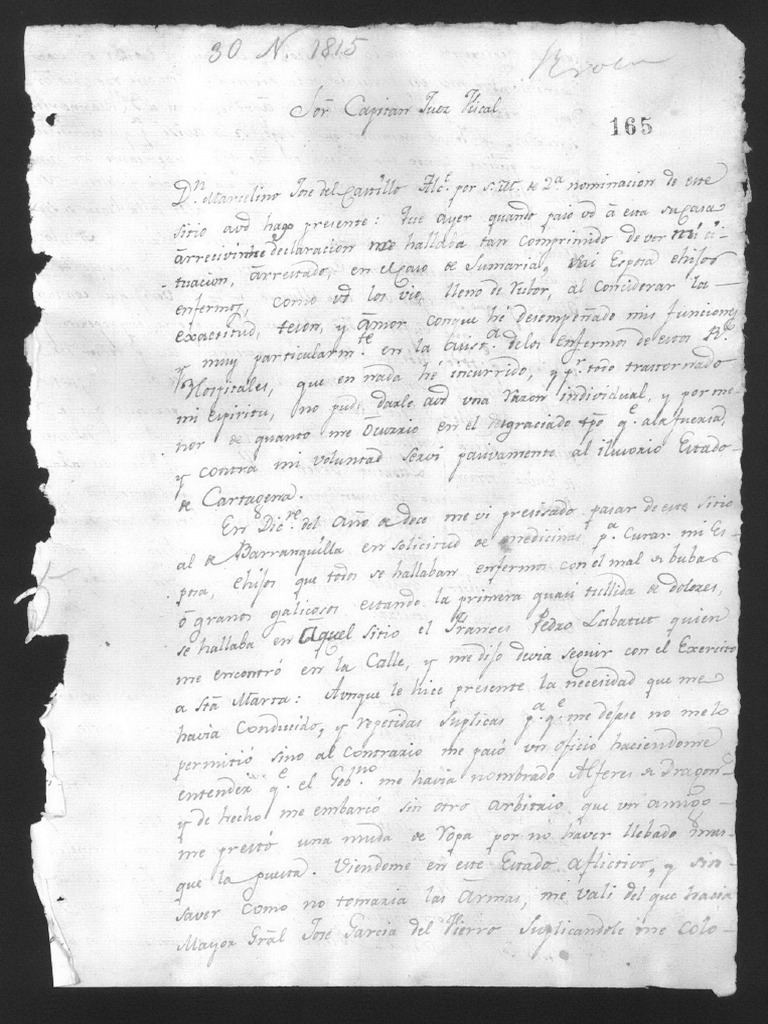 30 N. 1815
Sor. Capitan Juez Fiscal
165
Dn. Marcelino José del Castillo Alce. por S. M. de 2a. nominacion de este
sitio a vd hago presente: Que ayer quando pasó vd á esta su casa
á rrecivirme declaracion me hallaba tan comprimido de ver mi ci-
tuacion, arrestado, en el caso de sumaria, mi Esposa é hijos
enfermos, como vd los vio, lleno de rubor, al conciderar la
exactitud, teson, y amor conque hé desempeñado mis funciones
y muy particularmte. en la asista. de los enfermos de estos Rs.
Hospitales, que en nada hé incurrido, y pr. todo trastornado
mi espiritu, no pude darle a vd una razon individual, y por me-
nor de quanto me ocurrio en el desgraciado tpo qe. a la fuerza,
y contra mi voluntad servi pasivamente al ilusorio Estado
de Cartagena.
En 8 Dicre. del año de doce me vi presisado pasar de este sitio
al de Barranquilla en solicitud de medicinas pa. curar mi Es-
posa, é hijos que todos se hallaban enfermos con el mal de bubas
ó granos galicosos estando la primera quasi tullida de dolores,
se hallaba en aquel sitio el Frances Pedro Labatut quien
me encontró en la calle, y me dijo devia seguir con el Exercito
a Sta. Marta: Aunque le hice presente la necesidad que me
havia conducido, y repetidas suplicas pa. qe. me dejase no me lo
permitió sino al contrario me pasó un oficio haciendome
entender qe. el Gobno. me havia nombrado Alferes de Dragon-
y de hecho me embarcó sin otro arbitrio que un amigo
me prestó una muda de ropa por nó haver llebado mas
que la puesta. Viendome en este Estado aflictivo, y sin
saver como no tomaria las armas, me vali del que hacia
Mayor Gral José Garcia del Fierro suplicandole me colo-